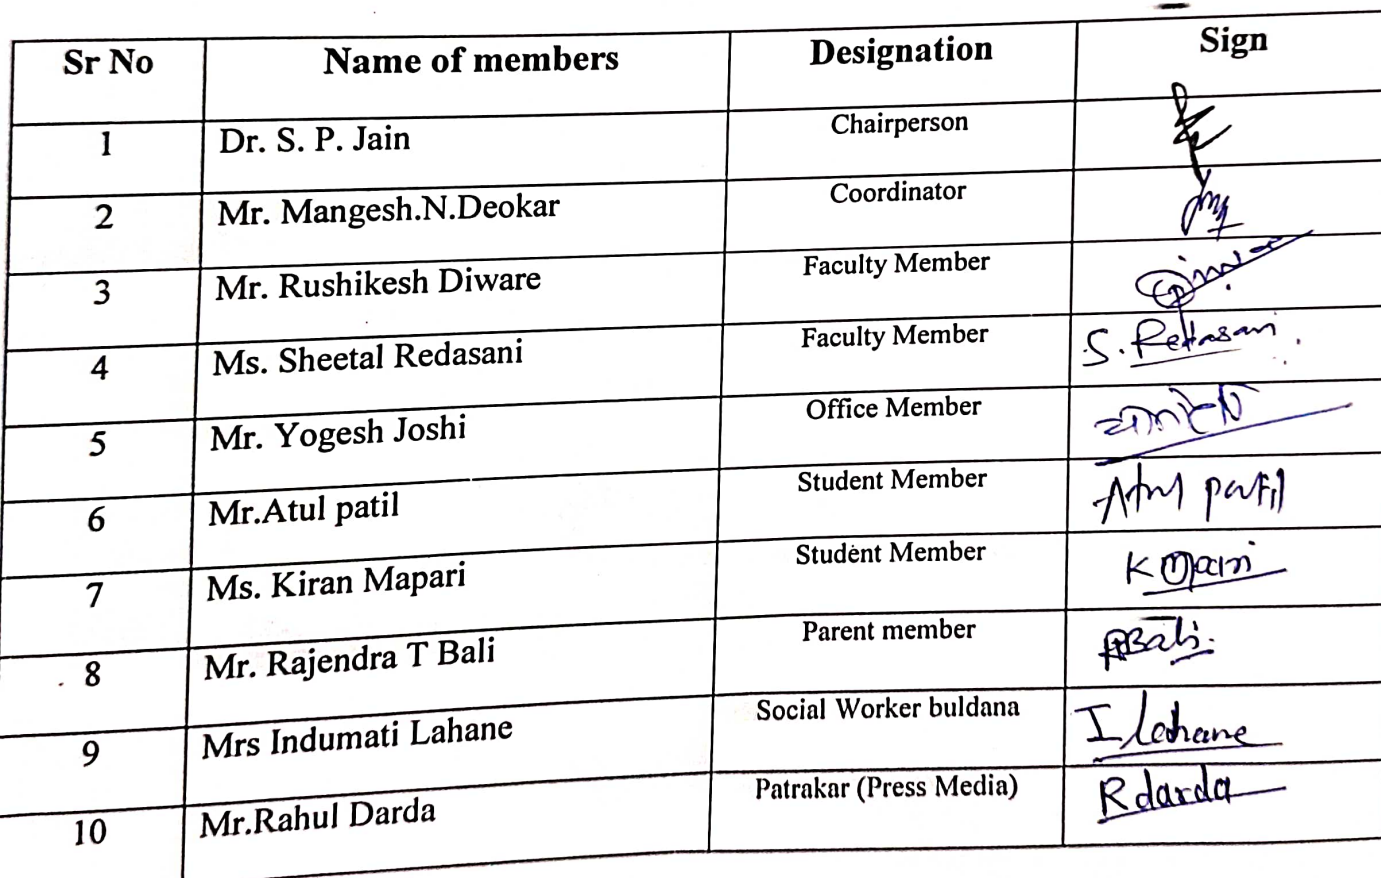 Sr No Name of members Designation Sign
1 Dr. S. P. Jain Chairperson
2 Mr. Mangesh.N.Deokar Coordinator
3 Mr. Rushikesh Diware Faculty Member
4 Ms. Sheetal Redasani Faculty Member S. Redasani
5 Mr. Yogesh Joshi Office Member
6 Mr.Atul patil Student Member Atul patil
7 Ms. Kiran Mapari Student Member K Mapari
8 Mr. Rajendra T Bali Parent member RBali
9 Mrs Indumati Lahane Social Worker buldana I lahane
10 Mr.Rahul Darda Patrakar (Press Media) R darda